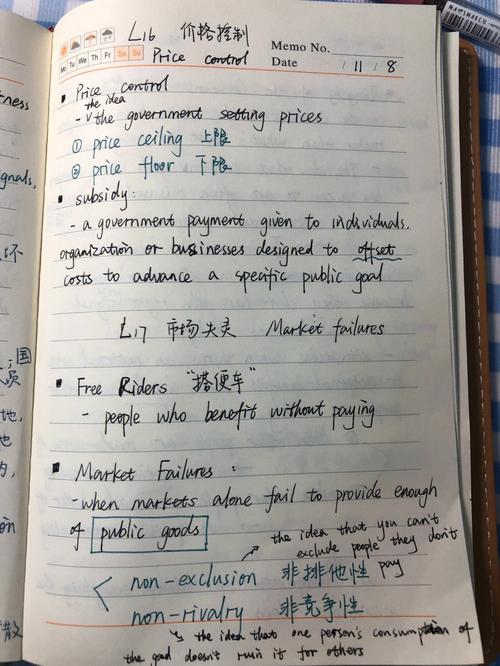 MARKCU
L16 价格控制
Price control
Memo No.
Mo Tu We Th Fr Sa Su
Date / 11 / 8
Price control
the idea
- ∨ the government setting prices
① price ceiling 上限
② price floor 下限
subsidy:
- a government payment given to individuals,
organization or businesses designed to offset
costs to advance a specific public goal
L17 市场失灵 Market failures
Free Riders "搭便车"
- people who benefit without paying
Market Failures :
- when markets alone fail to provide enough
of public goods
the idea that you can't
exclude people they don't
pay
non-exclusion 非排他性
non-rivalry 非竞争性
the idea that one person's consumption of
the good doesn't ruin it for others